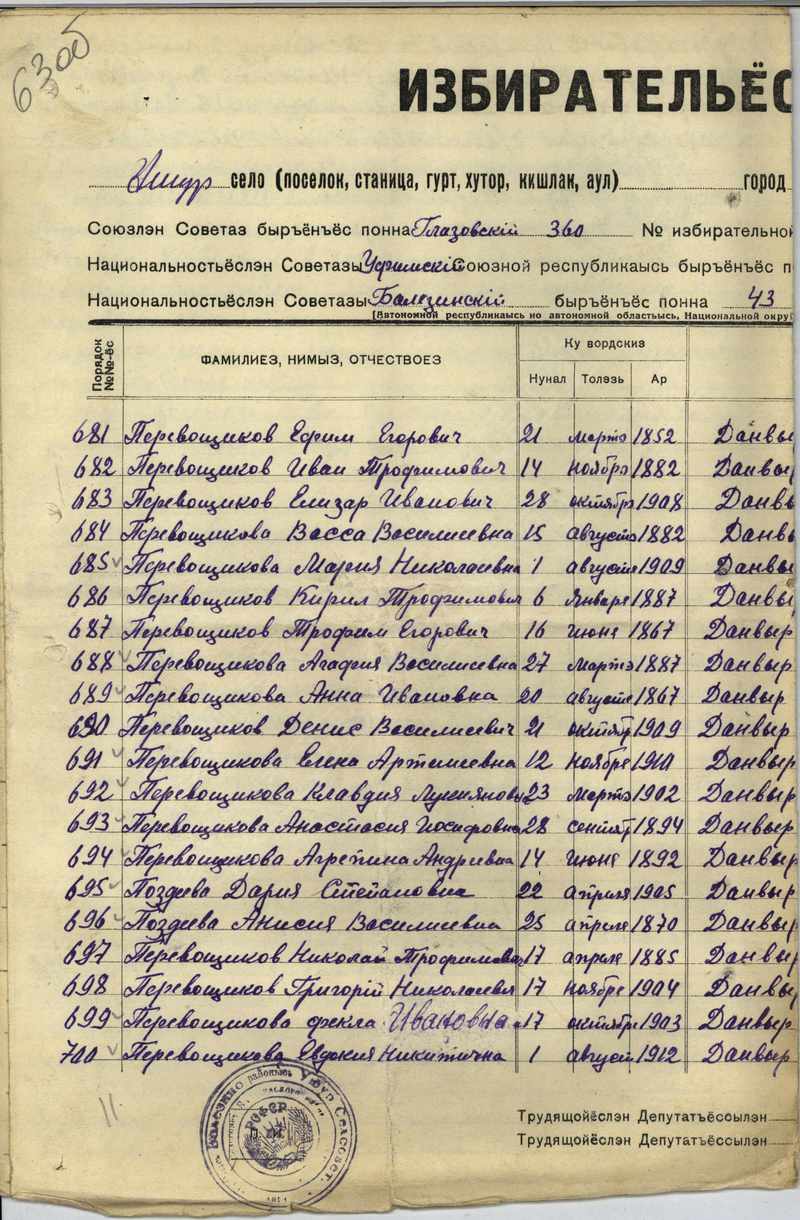 630б
ИЗБИРАТЕЛЬЁС
Ушур село (поселок, станица, гурт, хутор, кишлак, аул) город
Союзлэн Советаз быръёнъёс понна Глазовскій 360 № избирательной
Национальностьёслэн Советазы Союзной республикаысь быръёнъёс п
Национальностьёслэн Советазы Балезинскій быръёнъёс понна 43
[Автономной республикаысь но автономной областьысь, Национальной окру
Порядок №№-ёс ФАМИЛИЕЗ, НИМЫЗ, ОТЧЕСТВОЕЗ Ку вордскиз
Нунал Толэзь Ар
681 Перевощиков Ефим Егорович 21 мартэ 1852 Данвы
682 Перевощиков Иван Трофимович 14 ноябрэ 1882 Данвы
683 Перевощиков Елизар Иванович 28 октябрэ 1908 Данвы
684 Перевощикова Васса Василиевна 15 августэ 1882 Данвы
685 Перевощикова Мария Николаевна 1 августэ 1909 Данвы
686 Перевощиков Кирил Трофимович 6 январе 1887 Данвы
687 Перевощиков Трофим Егорович 16 июне 1867 Данвыр
688 Перевощикова Агафия Василиевна 27 мартэ 1887 Данвыр
689 Перевощикова Анна Ивановна 20 августе 1867 Данвыр
690 Перевощиков Денис Василиевич 21 октябр 1909 Данвыр
691 Перевощикова Елена Артемиевна 12 ноябре 1910 Данвыр
692 Перевощикова Клавдия Лукияновн 23 мартэ 1902 Данвыр
693 Перевощикова Анастасия Иосифовна 28 сентяб 1894 Данвыр
694 Перевощикова Агрепина Андриевна 14 июне 1892 Данвыр
695 Поздеева Дария Степановна 22 апреле 1905 Данвыр
696 Поздеева Анисия Василиевна 25 апреле 1870 Данвыр
697 Перевощиков Николай Трофимович 17 апреле 1885 Данвыр
698 Перевощиков Григорій Николаевич 17 ноябре 1904 Данвы
699 Перевощикова Фекла Ивановна 17 октябре 1903 Данвыр
700 Перевощикова Евдокия Никитична 1 август 1912 Данвыр
11
РСФСР
Трудящойёслэн Депутатъёссылэн
Трудящойёслэн Депутатъёссылэн